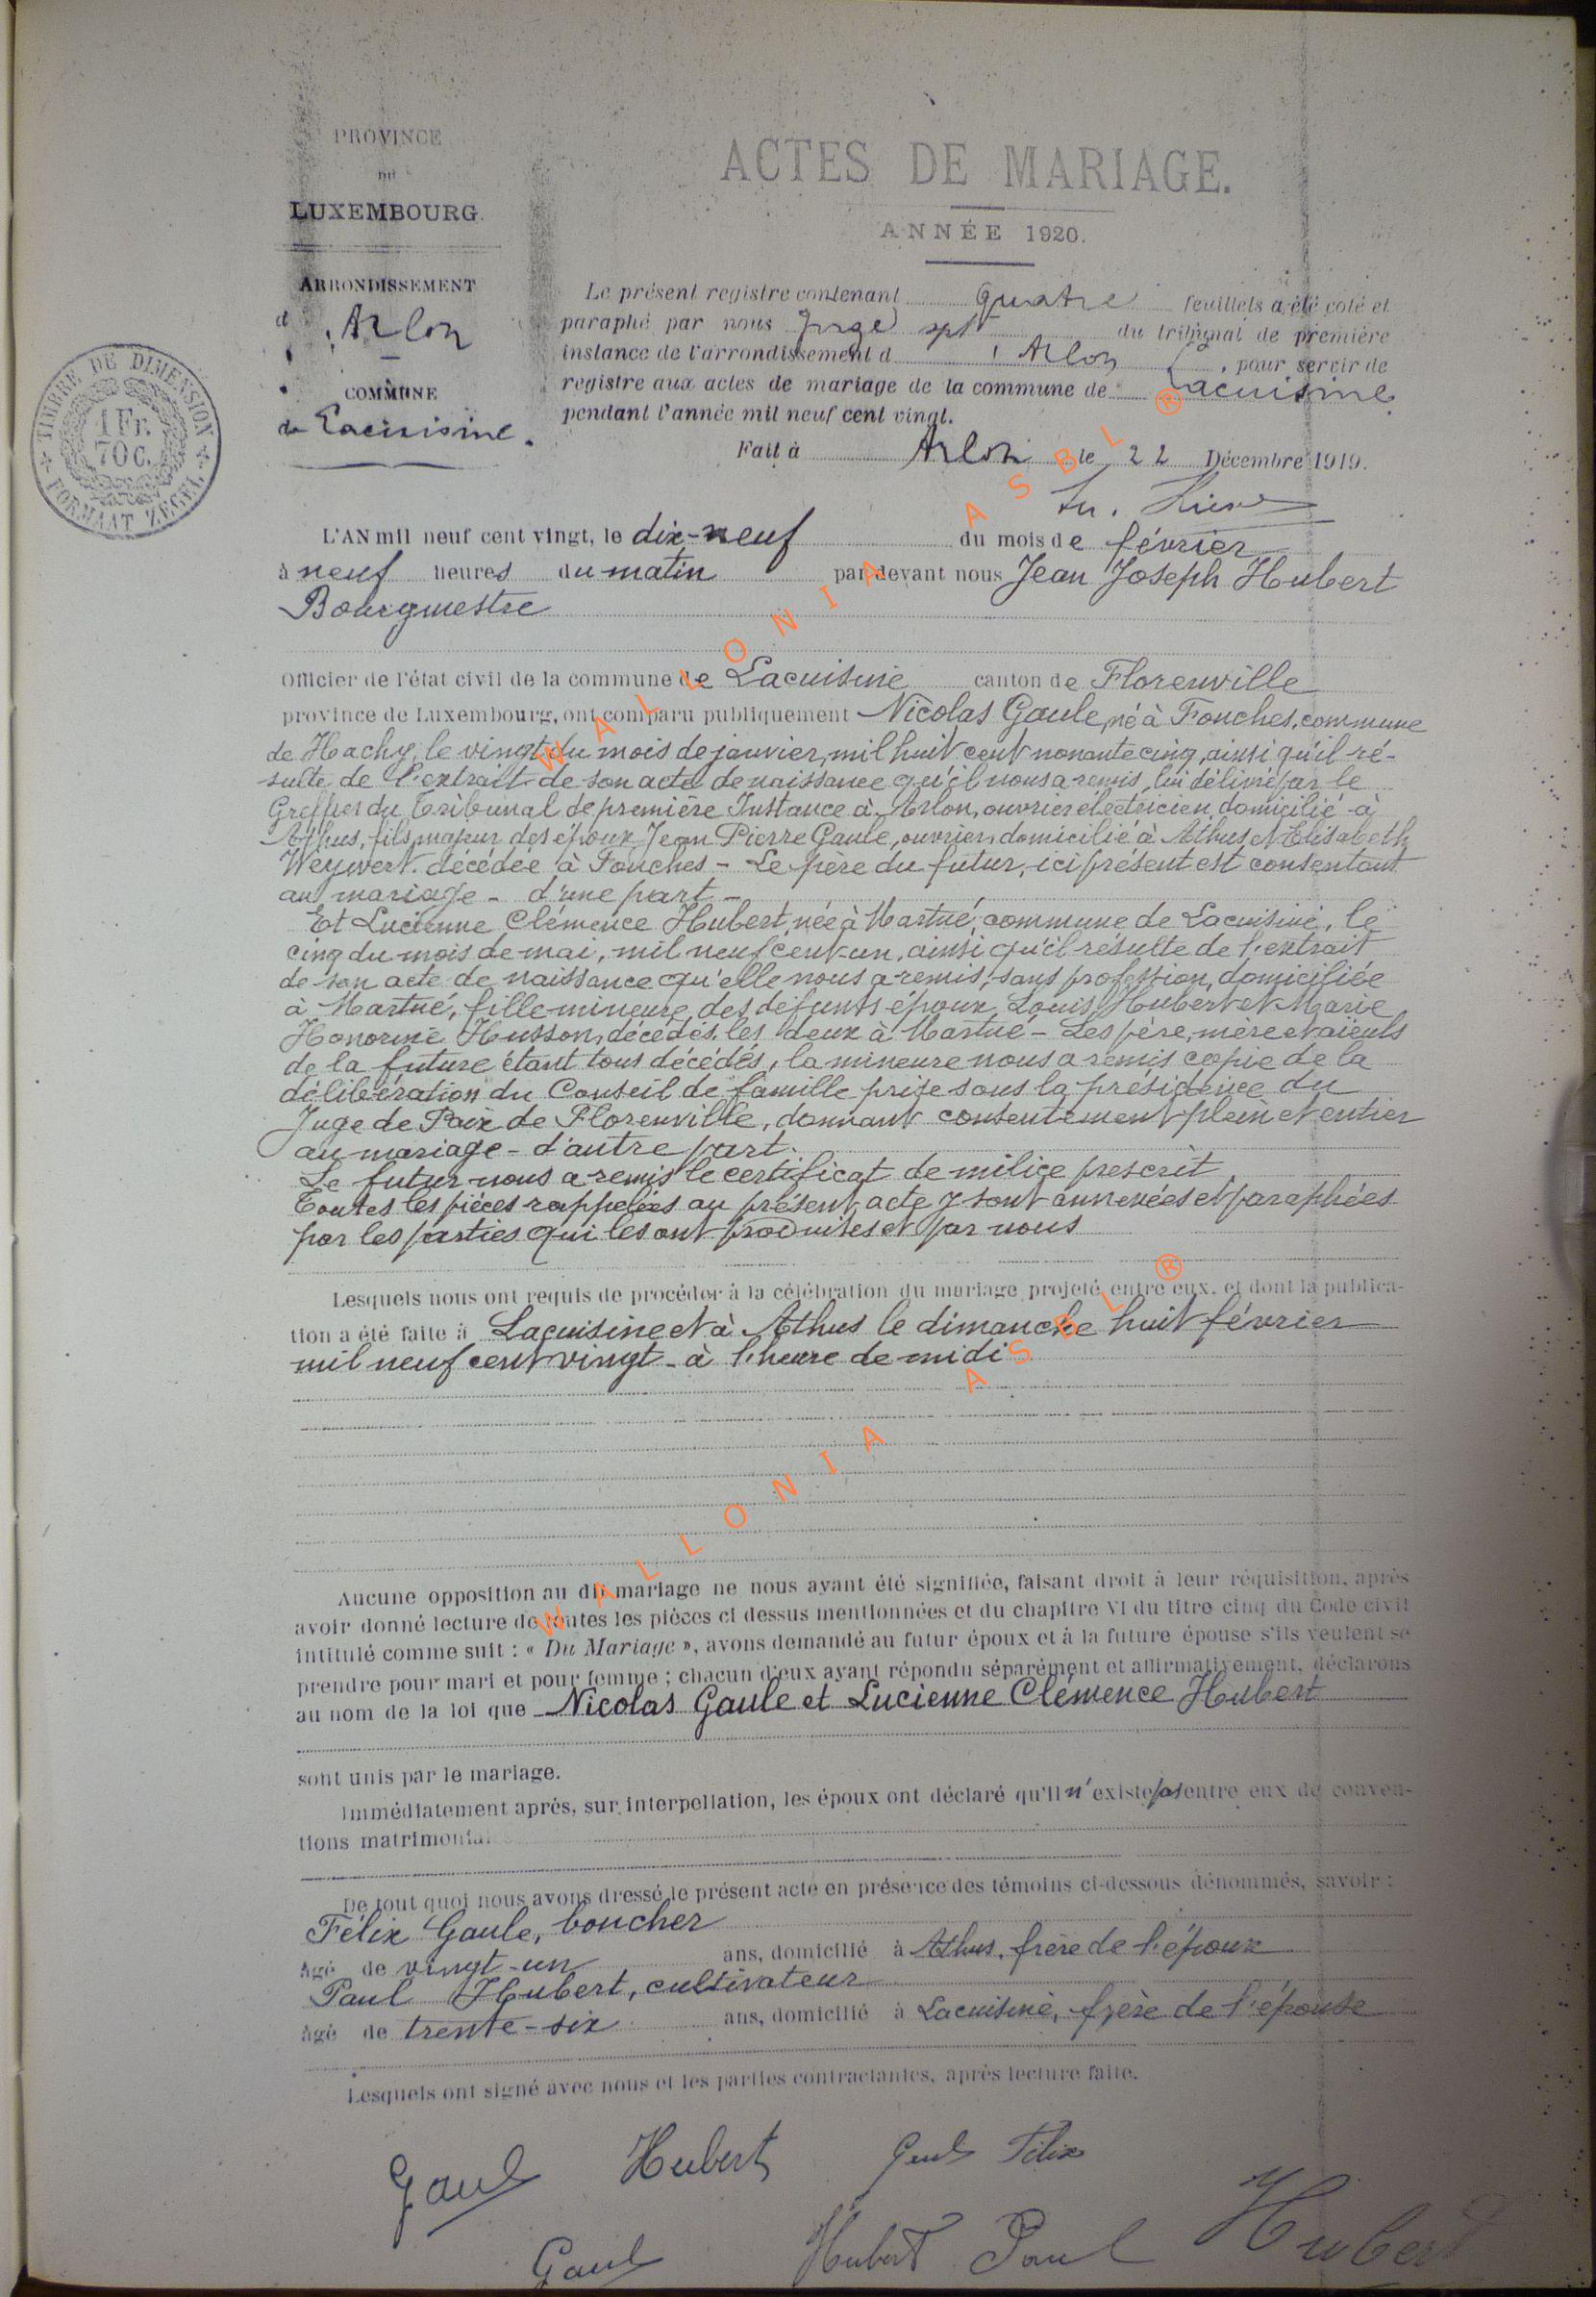 PROVINCE
DU
LUXEMBOURG.
ARRONDISSEMENT
d'Arlon
COMMUNE
de Lacuisine.
TIMBRE DE DIMENSION
1 Fr.
70 c.
FORMAAT ZEGEL
ACTES DE MARIAGE.
ANNÉE 1920.
Le présent registre contenant quatre feuillets a été coté et
paraphé par nous Juge du tribunal de première
instance de l'arrondissement d'Arlon, pour servir de
registre aux actes de mariage de la commune de Lacuisine
pendant l'année mil neuf cent vingt.
Fait à Arlon le 22 Décembre 1919.
L'AN mil neuf cent vingt, le dix-neuf du mois de février
à neuf heures du matin par devant nous Jean Joseph Hubert
Bourgmestre
Officier de l'état civil de la commune de Lacuisine canton de Florenville
province de Luxembourg, ont comparu publiquement Nicolas Gaule, né à Fouches, commune
de Hachy, le vingt du mois de janvier, mil huit cent nonante cinq, ainsi qu'il ré-
sulte de l'extrait de son acte de naissance qu'il nous a remis, lui délivré par le
Greffier du Tribunal de première Instance à Arlon, ouvrier électricien, domicilié à
Athus, fils majeur des époux Jean Pierre Gaule, ouvrier, domicilié à Athus, et Elisabeth
Weywert, décédée à Fouches – Le père du futur, ici présent est consentant
au mariage – d'une part –
Et Lucienne Clémence Hubert, née à Martué, commune de Lacuisine, le
cinq du mois de mai, mil neuf cent un, ainsi qu'il résulte de l'extrait
de son acte de naissance qu'elle nous a remis, sans profession, domiciliée
à Martué, fille mineure, des défunts époux Louis Hubert et Marie
Honorine Husson, décédés, les deux à Martué – Les père, mère et aïeuls
de la future étant tous décédés, la mineure nous a remis copie de la
délibération du Conseil de famille prise sous la présidence du
Juge de Paix de Florenville, donnant consentement plein et entier
au mariage – d'autre part.
Le futur nous a remis le certificat de milice prescrit
Toutes les pièces rappelées au présent acte y sont annexées et paraphées
par les parties qui les ont produites et par nous
Lesquels nous ont requis de procéder à la célébration du mariage projeté entre eux, et dont la publica-
tion a été faite à Lacuisine et à Athus le dimanche huit février
mil neuf cent vingt – à l'heure de midi
Aucune opposition au dit mariage ne nous ayant été signifiée, faisant droit à leur réquisition, après
avoir donné lecture de toutes les pièces ci dessus mentionnées et du chapitre VI du titre cinq du Code civil
intitulé comme suit : « Du Mariage », avons demandé au futur époux et à la future épouse s'ils veulent se
prendre pour mari et pour femme ; chacun d'eux ayant répondu séparément et affirmativement, déclarons
au nom de la loi que Nicolas Gaule et Lucienne Clémence Hubert
sont unis par le mariage.
Immédiatement après, sur interpellation, les époux ont déclaré qu'il n'existe pas entre eux de conven-
tions matrimonial
De tout quoi nous avons dressé le présent acte en présence des témoins ci-dessous dénommés, savoir :
Félix Gaule, boucher
âgé de vingt-un ans, domicilié à Athus, frère de l'époux
Paul Hubert, cultivateur
âgé de trente-six ans, domicilié à Lacuisine, frère de l'épouse
Lesquels ont signé avec nous et les parties contractantes, après lecture faite.
Gaul Hubert Gaul Félix
Gaul Hubert Paul Hubert
WALLONIA ASBL ®
WALLONIA ASBL ®